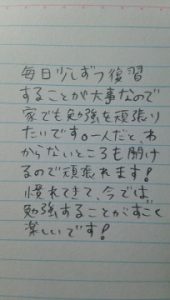 毎日少しずつ復習
することが大事なので
家でも勉強を頑張り
たいです。一人だと、わ
からないところも聞け
るので頑張れます!
慣れてきて、今では
勉強することがすごく
楽しいです!